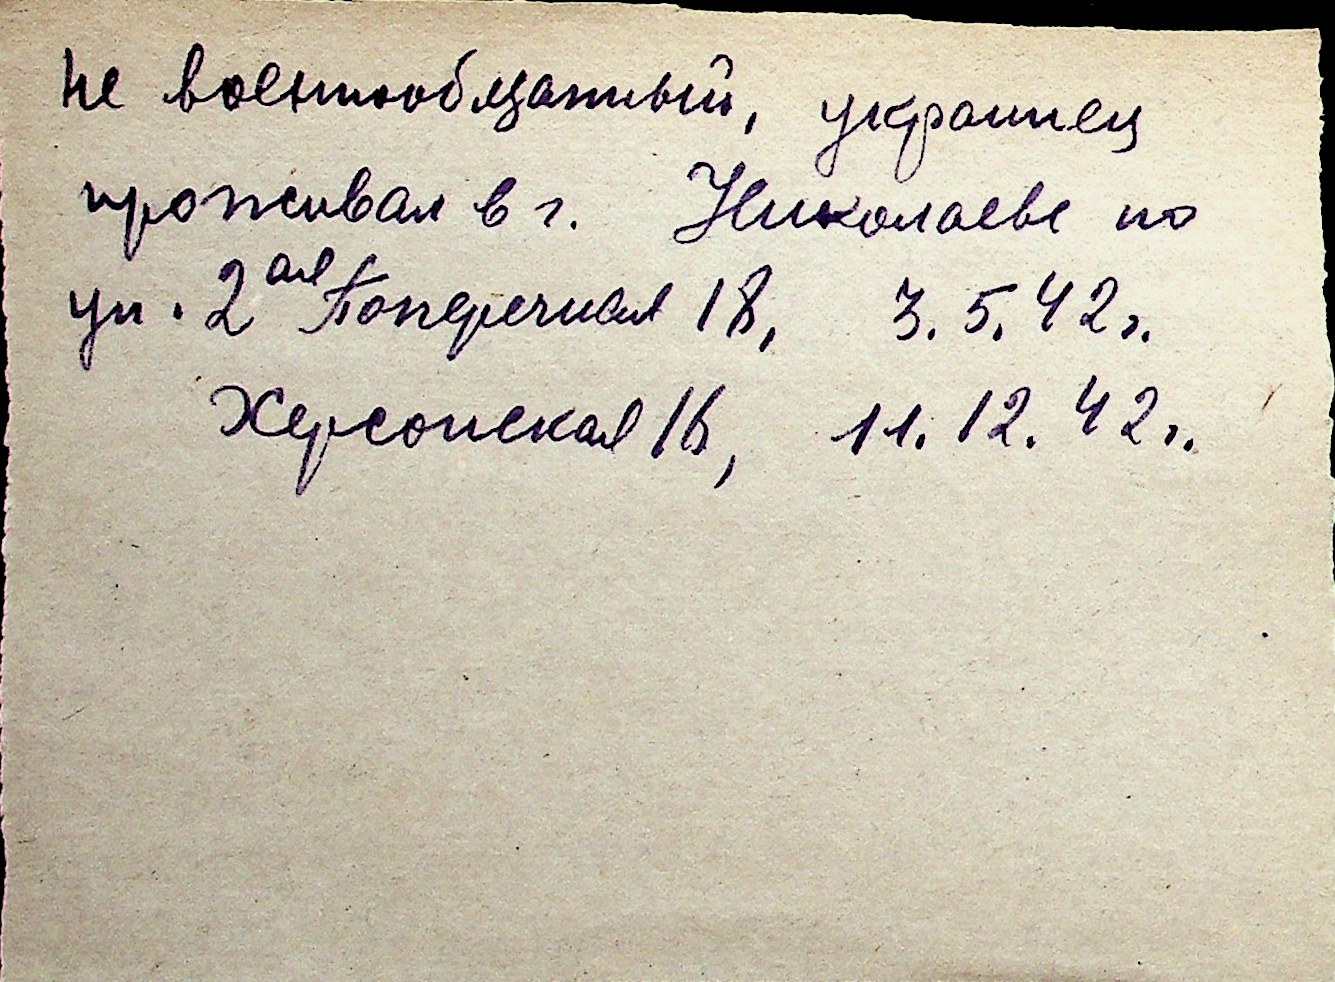 не военнообязанный, украинец
проживал в г. Николаеве по
ул. 2ая Поперечная 18, 3.5.42г.
Херсонская 16, 11.12.42г.